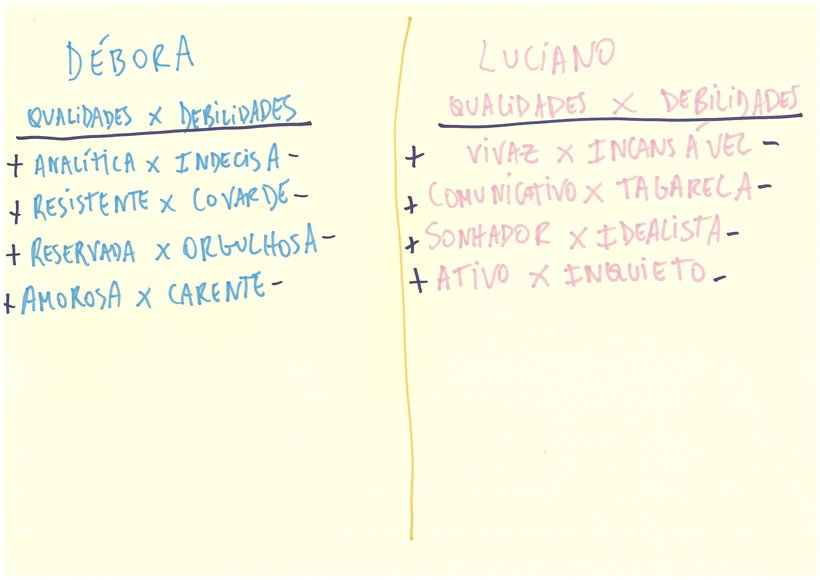 DÉBORA
QUALIDADES X DEBILIDADES
+ ANALÍTICA X INDECISA -
+ RESISTENTE X COVARDE -
+ RESERVADA X ORGULHOSA -
+ AMOROSA X CARENTE -
LUCIANO
QUALIDADES X DEBILIDADES
+ VIVAZ X INCANSÁVEL -
+ COMUNICATIVO X TAGARELA -
+ SONHADOR X IDEALISTA -
+ ATIVO X INQUIETO -